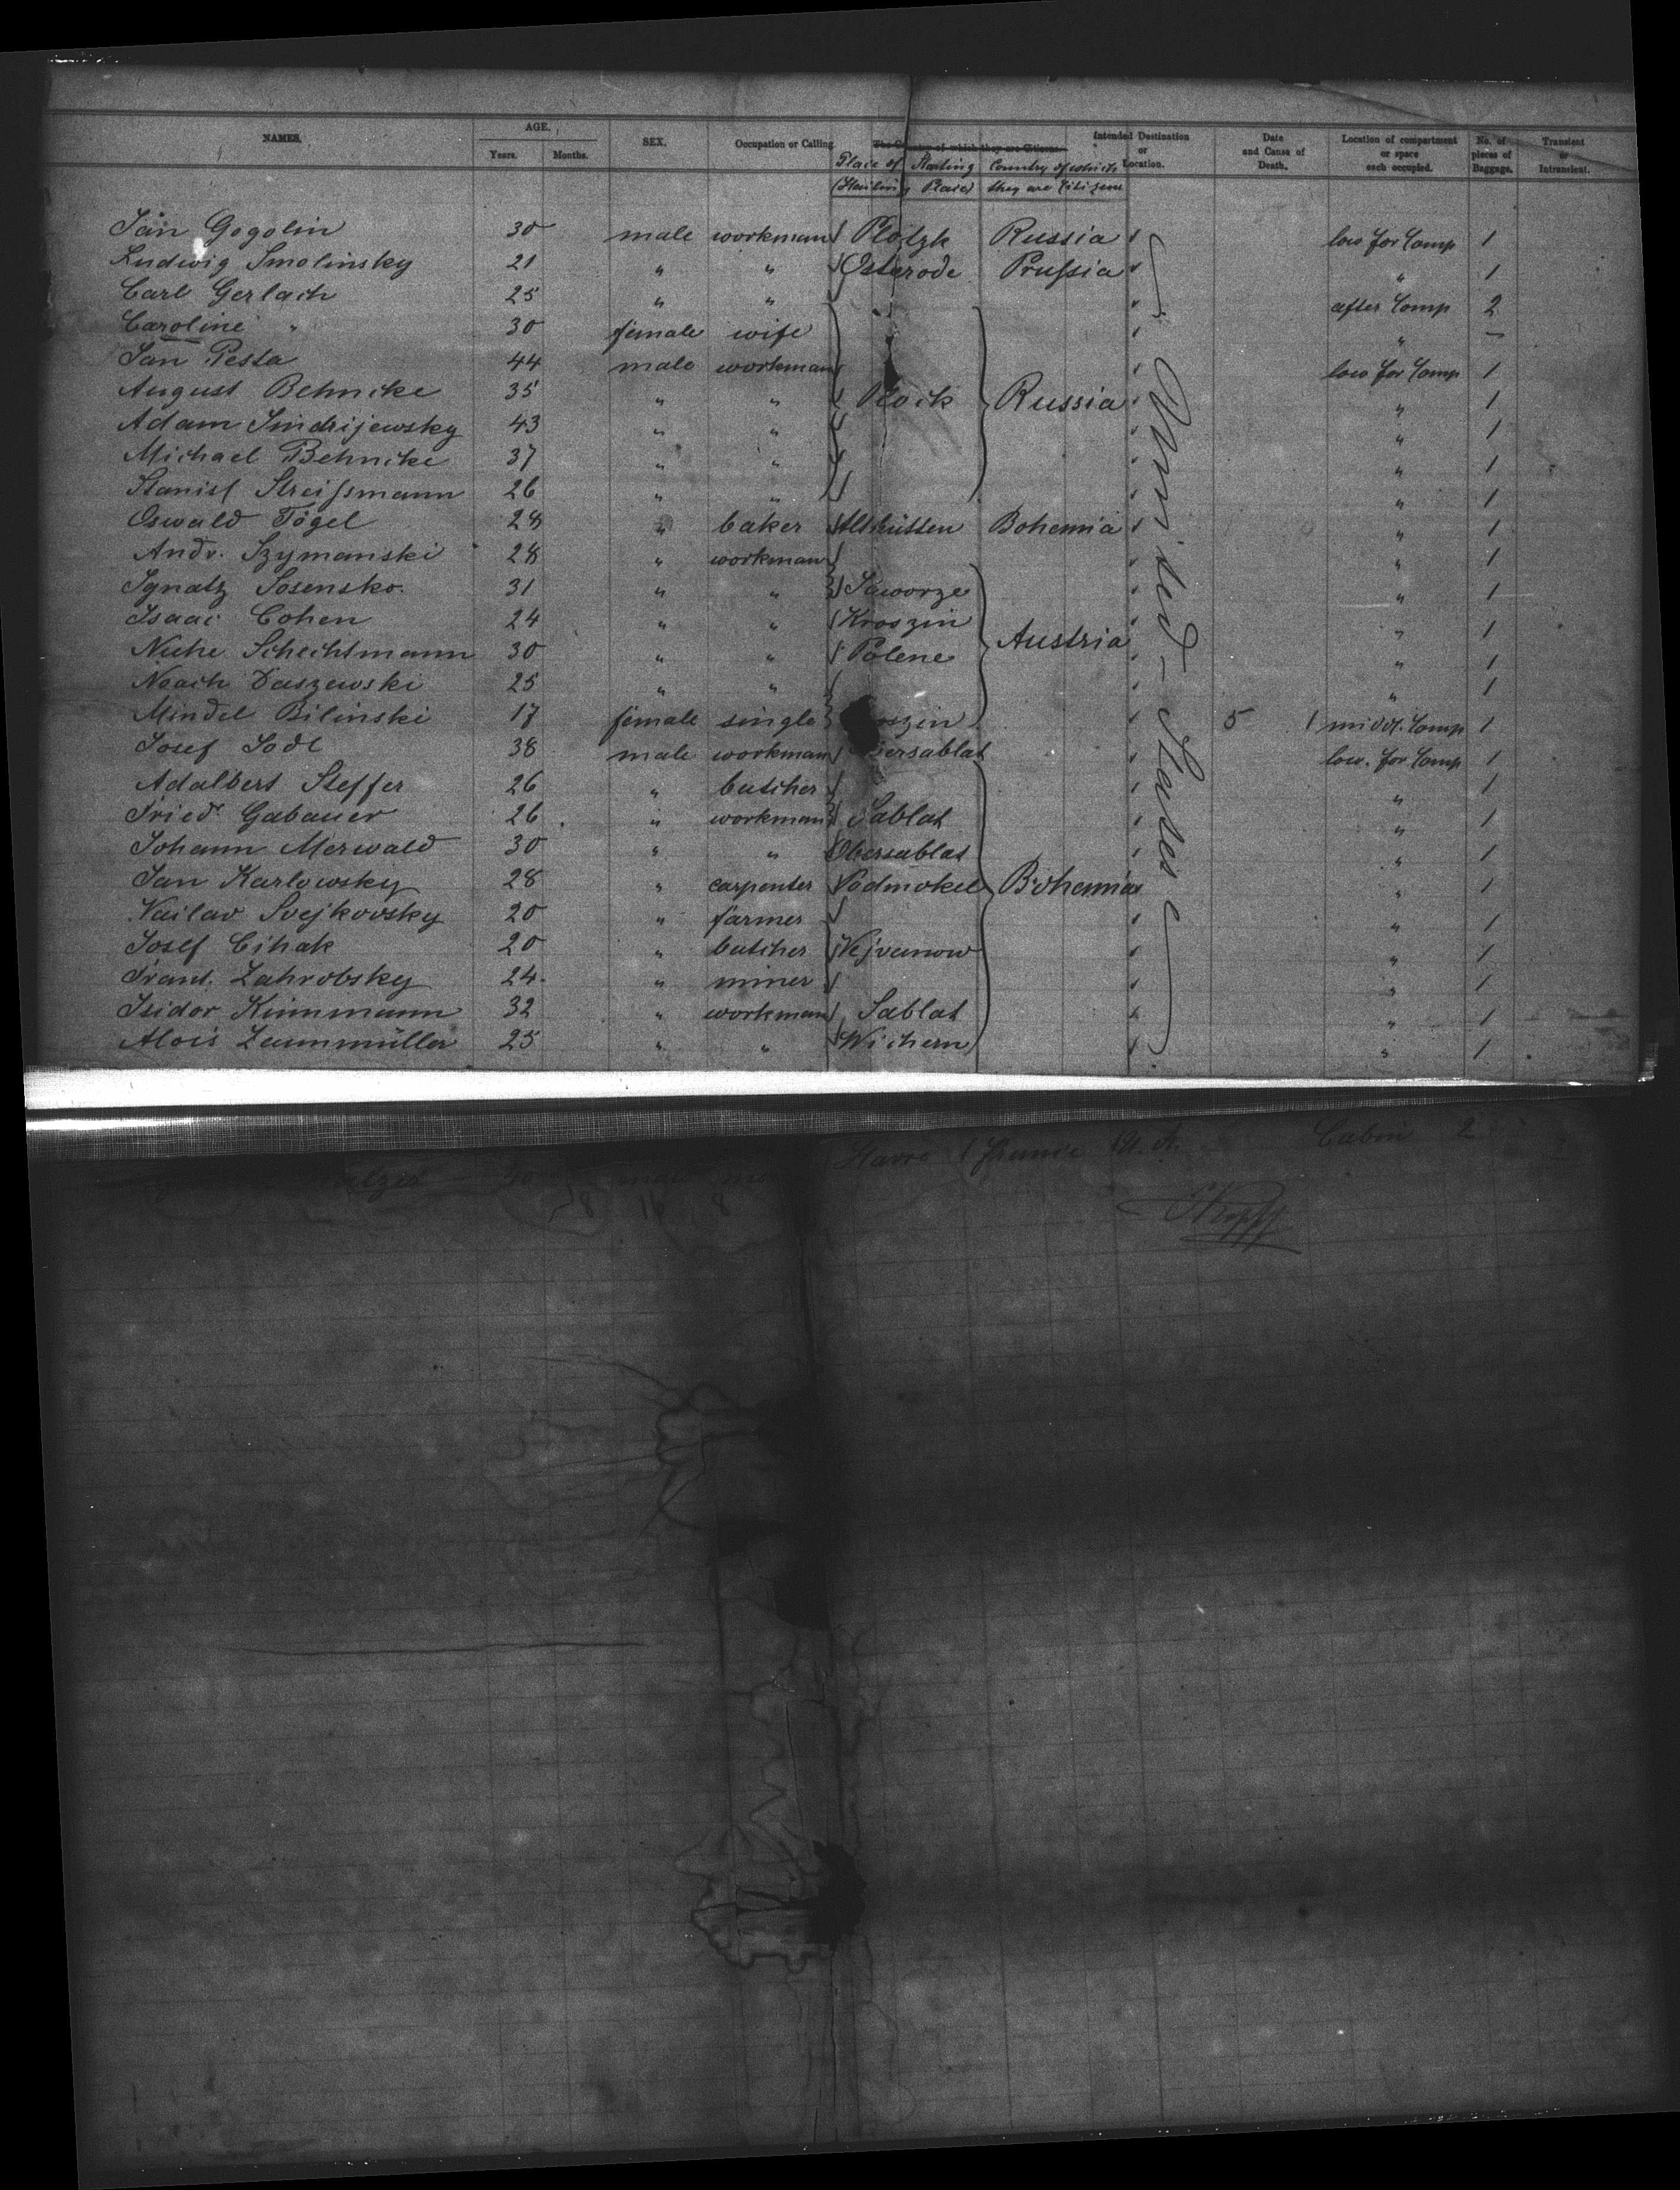 NAMES. AGE. Years. Months. SEX. Occupation or Calling. The Country of which they are Citizens. Intended Destination or Location. Date and Cause of Death. Location of compartment or space each occupied. No. of pieces of Baggage. Transient or Intransient.
Place of Starting Country of which
(Starting Place) they are Citizens
Jan Gogolin 30 male workman Plotzk Russia low for Comp 1
Ludwig Smolinsky 21 " " Osterode Prussia " 1
Carl Gerlach 25 " " after Comp 2
Caroline " 30 female wife " —
Jan Pesta 44 male workman low for Comp 1
August Behncke 35 " " Plock Russia " 1
Adam Jindrijewsky 43 " " " 1
Michael Behncke 37 " " " 1
Stanisl Streissmann 26 " " " 1
Oswald Tögel 28 " baker Bohemia " 1
Andr. Szymanski 28 " workman " 1
Ignatz Sosensko. 31 " " Jaworze " 1
Isaac Cohen 24 " " Kroszin " 1
Nuche Schechtmann 30 " " Polene Austria " 1
Noach Daszewski 25 " " " 1
Mindel Bilinski 17 female single oszin 5 1 middl. Comp 1
Josef Sodl 38 male workman ersablat low. for Comp 1
Adalbert Steffer 26 " butcher " 1
Fried. Gabauer 26 " workman Sablat " 1
Johann Merwald 30 " " Obersablat " 1
Jan Karlowsky 28 " carpenter Podmokel Bohemia " 1
Vaclav Svejkovsky 20 " farmer " 1
Josef Cihak 20 " butcher Vejvanow " 1
Frant. Zahrobsky 24 " miner " 1
Isidor Kinnmann 32 " workman Sablat " 1
Alois Zaunmüller 25 " " Wichern " 1
United States
Havre France U. A. Cabin 2